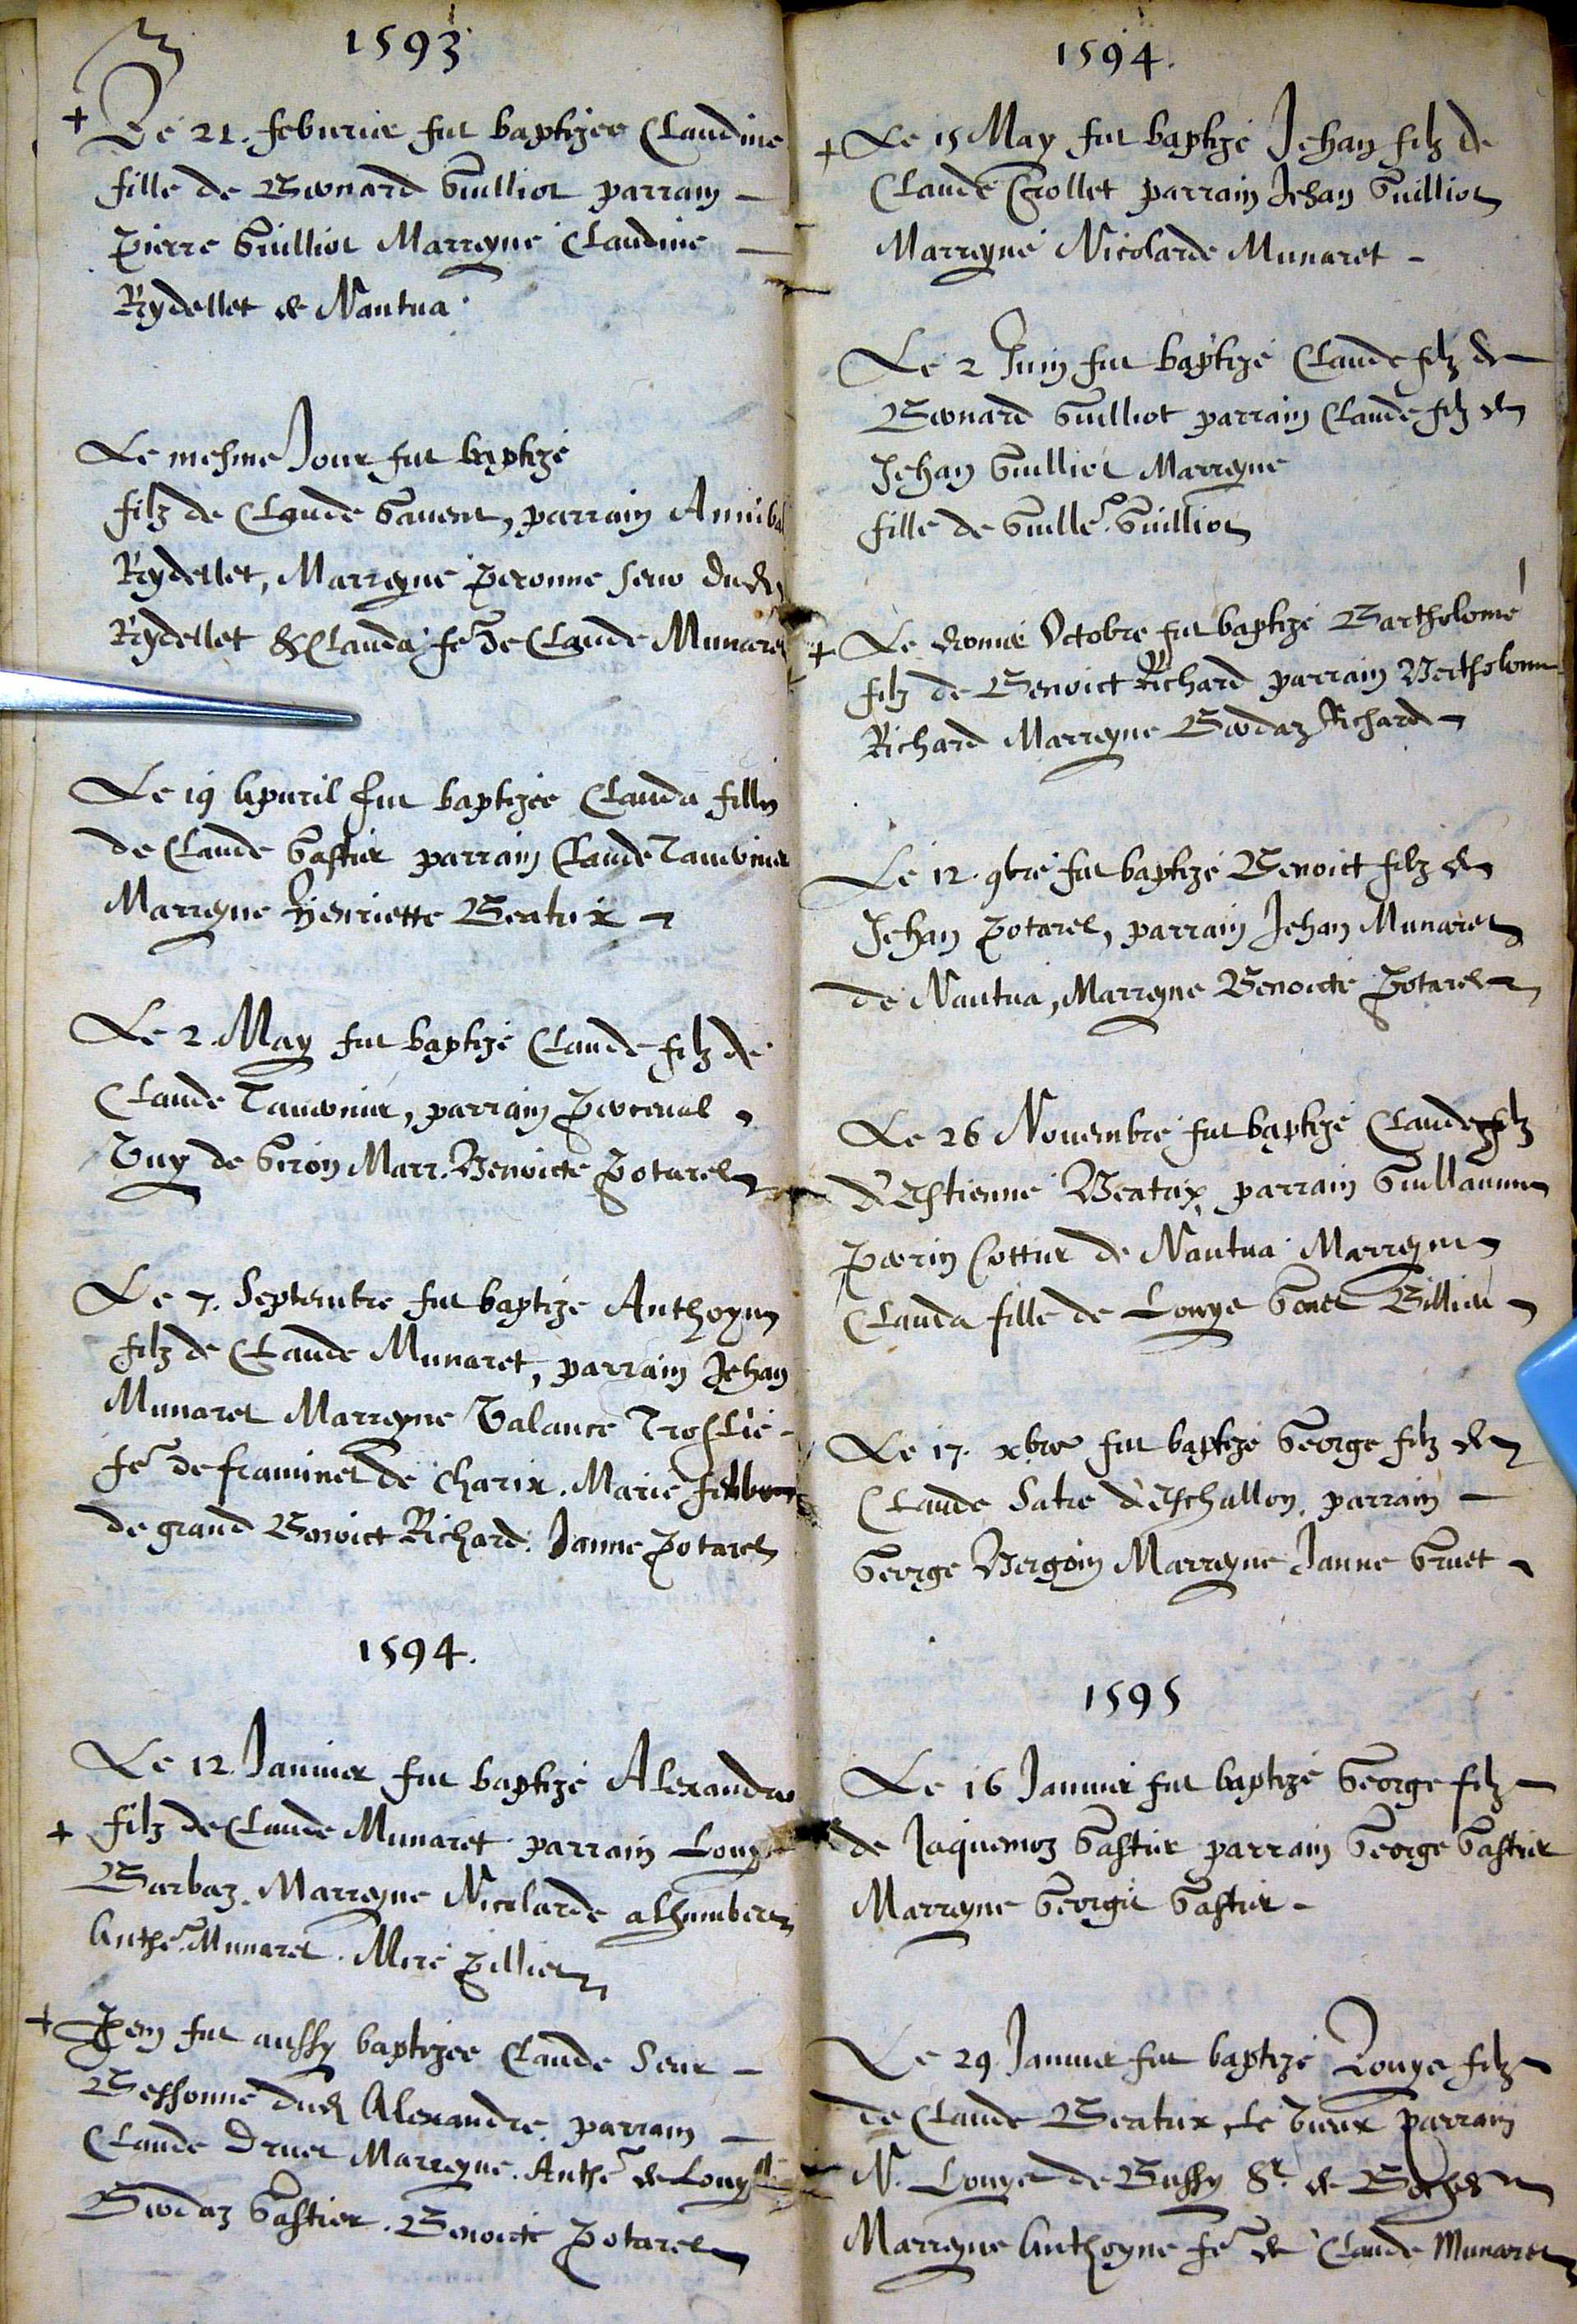 1593
Le 21. feburier fut baptizee Claudine
fille de Bernard Guilliot parrain
Pierre Guilliot Marreyne Claudine
Rydellet de Nantua
Le mesme Jour fut baptizé
filz de Claude Gauent, parrain Annibal
Rydellet, Marreyne Peronne serv dud
Rydellet & Clauda fe de Claude Munaret
Le 19 Apuril fut baptizée Clauda fille
de Claude Gastier parrain Claude Tauernier
Marreyne Henriette Beatrix
Le 2. May fut baptizé Claude filz de
Claude Tauernier, parrain Perceval
Vuy de Giron Marr. Benoicte Potarel
Le 7. Septembre fut baptizé Anthoyne
filz de Claude Munaret, parrain Jehan
Munaret Marreyne Valance
fe de framinet de Charix. Marie
de grand Benoict Richard. Janne Potarel
1594.
Le 12 Januier fut baptizé Alexandre
filz de Claude Munaret parrain Louys
Barbaz. Marreyne Nicolarde alhumbert
Anthe. Munaret. Mere Pilliet
Item fut aussy baptizee Claude Seur
Bessonne dud Alexandre. parrain
Claude Druet Marreyne. Anthe de Louys
Berdaz Gastier. Benoicte Potarel
1594.
Le 15 May fut baptizé Jehan filz de
Claude Crollet parrain Jehan Guilliot
Marreyne Nicolarde Munaret
Le 2 Juin fut baptizé Claude filz de
Bernard Guilliot parrain Claude filz de
Jehan Guilliot Marreyne
fille de Guille. Guilliot
Le dernier Octobre fut baptizé Bartholomé
filz de Benoict Richard parrain Bertholome
Richard Marreyne Berdaz Richard
Le 12. 9bre fut baptizé Benoict filz de
Jehan Potarel, parrain Jehan Munaret
de Nantua, Marreyne Benoicte Potarel
Le 26 Nouembre fut baptizé Claude filz
d'Estienne Beatrix parrain Guillaume
Perrin Cottier de Nantua Marreyne
Clauda fille de Louye Gonet Billiet
Le 17. xbre fut baptizé George filz de
Claude Satre d'Eschallon. parrain
George Bergoin Marreyne Janne Gruet
1595
Le 16 Januier fut baptizé George filz
de Jaquemoz Gastier parrain George Gastier
Marreyne George Gastier
Le 29 Januier fut baptizé Louye filz
de Claude Beatrix le vieux parrain
N. Louye de Bussy Sr. de
Marreyne Anthoyne fe de Claude Munaret